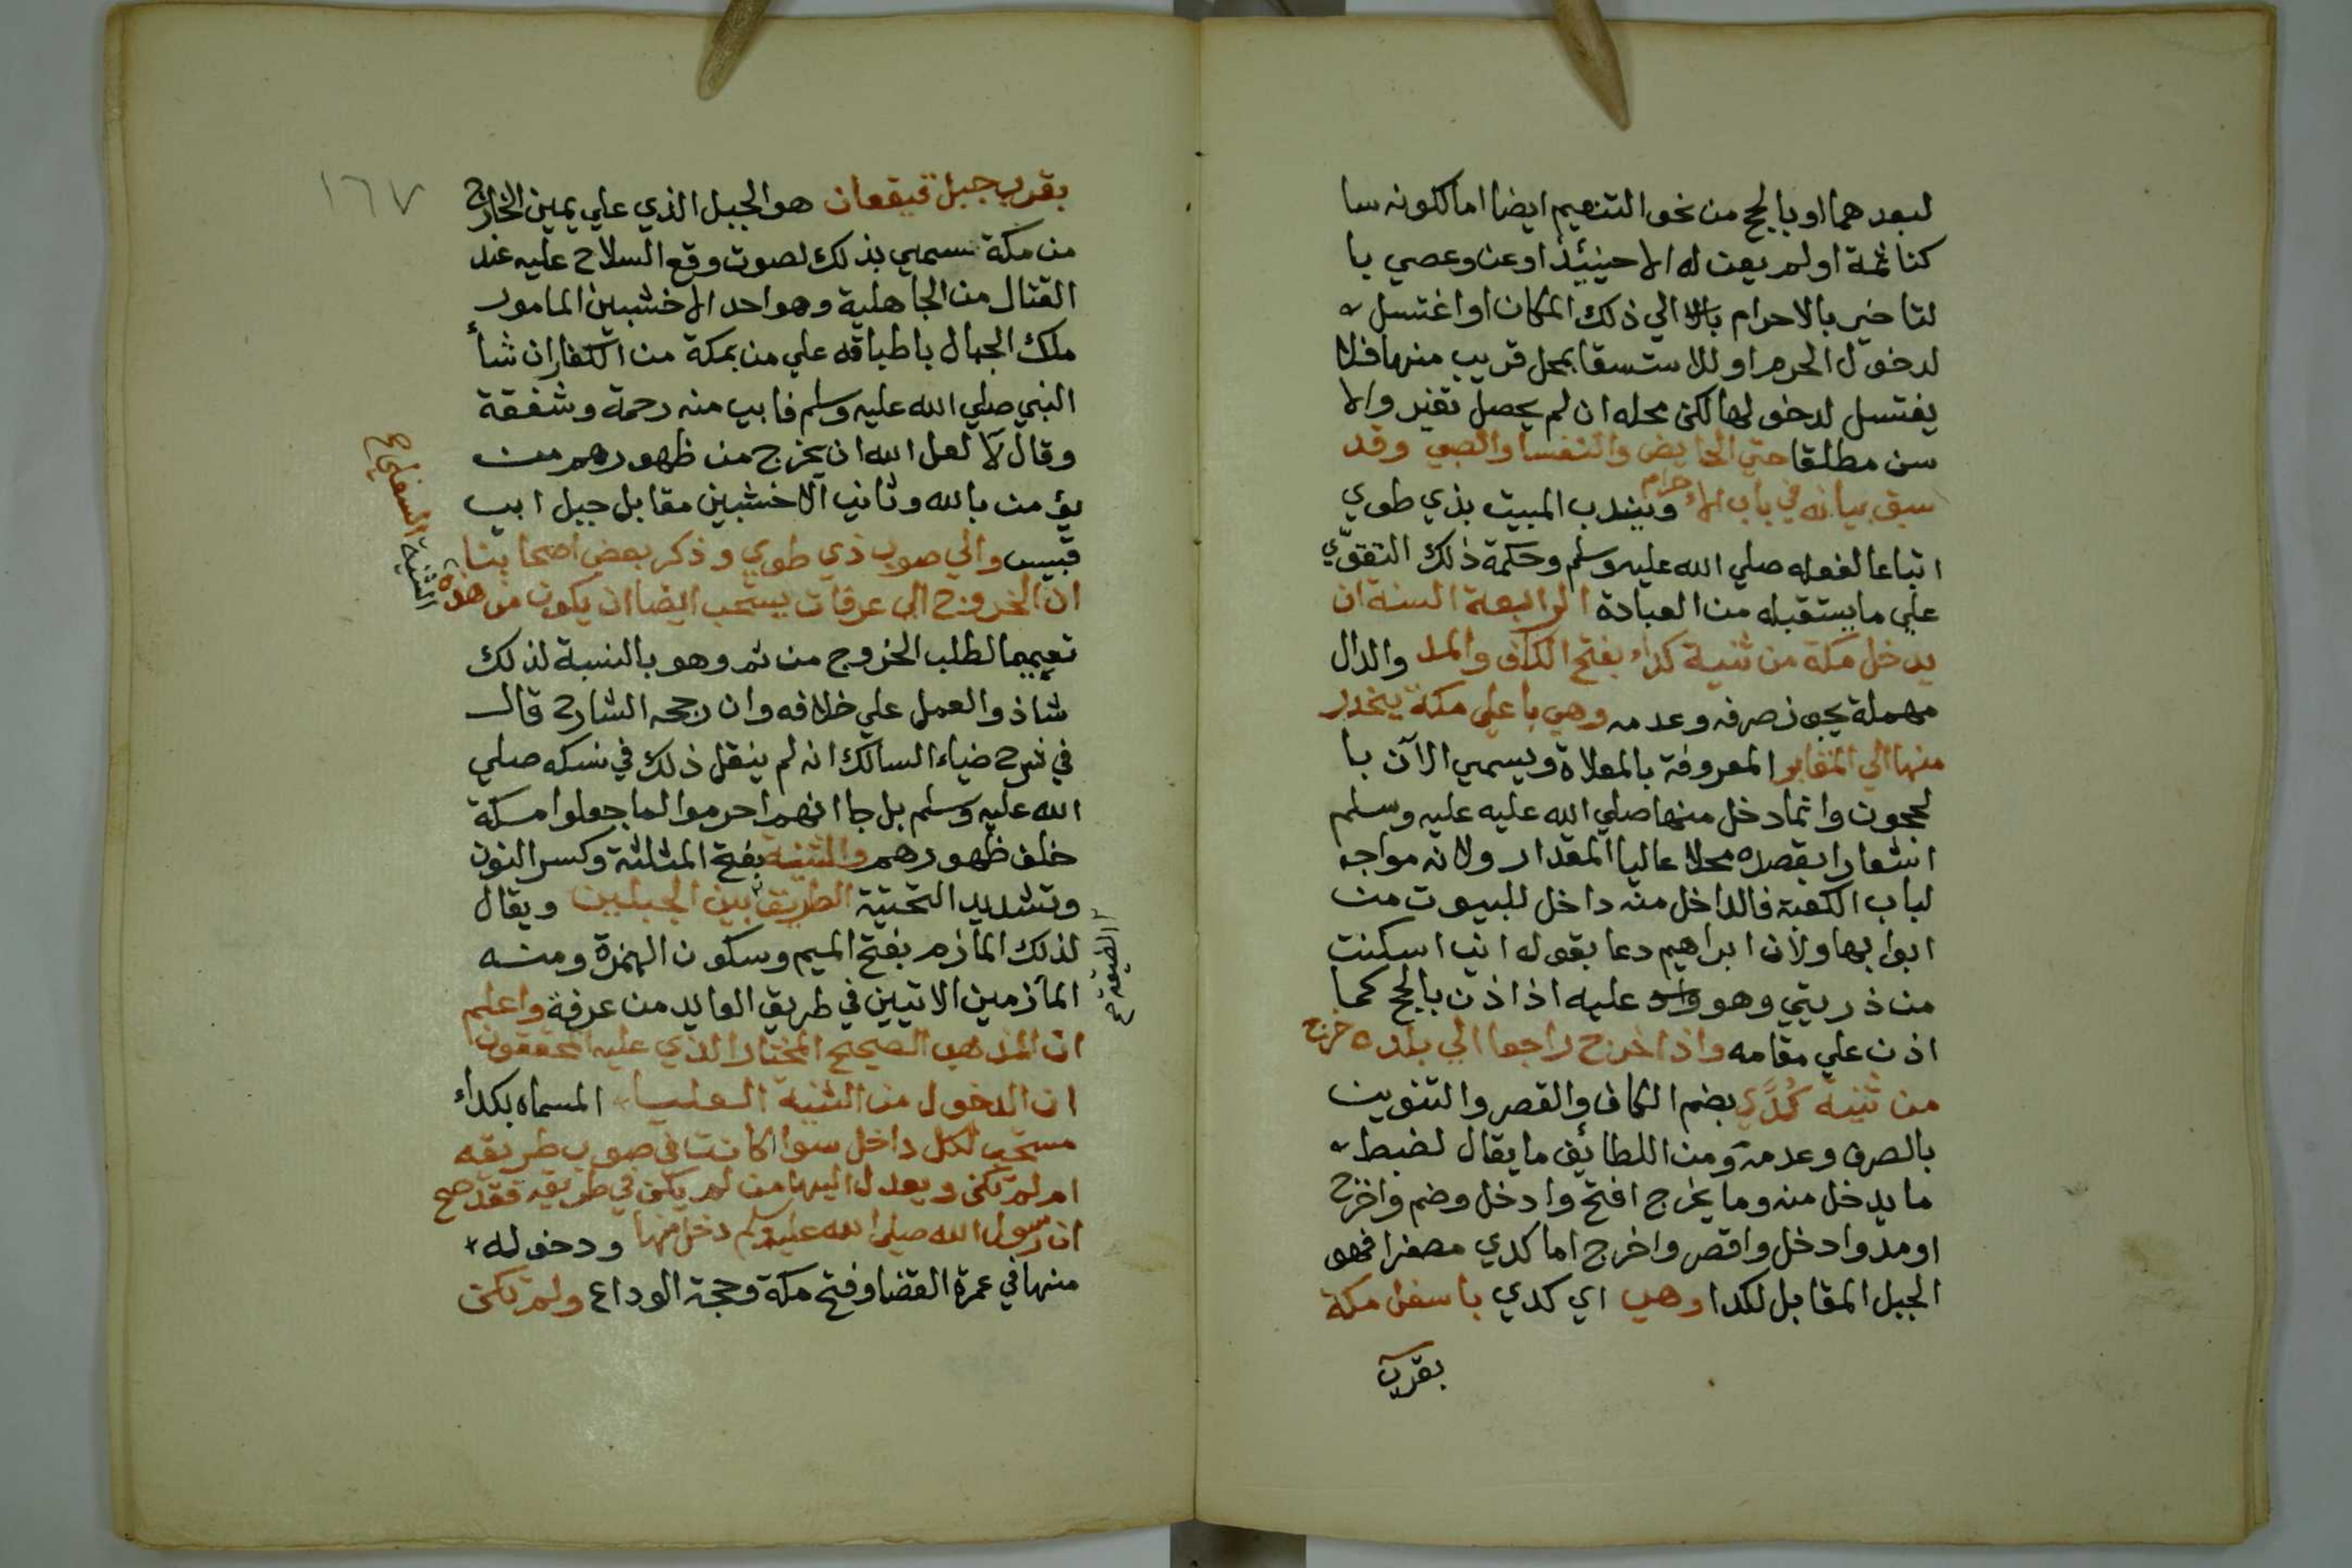 لبعدهما او بالحج من نحو التنعيم ايضا اما لكونه سا
كنا ثمة او لم يعن له الا حينئذ او عن وعصي با
لتاخير بالاحرام بالا الي ذلك المكان او اغتسل
لدخول الحرم او للاستسقا بمحل قريب منها فلا
يغتسل لدخولها لكن محله ان لم يحصل تغير والا
سن مطلقا حتي الحايض والنفسا والصبي وقد
سبق بيانه في باب الاحرام ويندب المبيت بذي طوي
اتباعا لفعله صلي الله عليه وسلم وحكمة ذلك التقوّي
علي ما يستقبله من العبادة الرابعة السنة ان
يدخل مكة من ثنية كداء بفتح الكاف والمد والدال
مهملة يجوز صرفه وعدمه وهي باعلي مكة ينحدر
منها الي المقابر المعروفة بالمعلاة ويسمي الآن با
لحجون وانما دخل منها صلي الله عليه عليه وسلم
اشعارا بقصده محلا عاليا المقدار ولانه مواجه
لباب الكعبة فالداخل منه داخل للبيوت من
ابوابها ولان ابراهيم دعا بقوله اني اسكنت
من ذريتي وهو واد عليه اذ اذن بالحج كما
اذن علي مقامه واذا خرج راجعا الي بلده خرج
من ثنية كُدًي بضم الكاف والقصر والتنوين
بالصرف وعدمه ومن اللطائف ما يقال لضبط
ما يدخل منه وما يخرج افتح وادخل وضم واخرج
او مد وادخل واقصر واخرج اما كدي مصغرا فهو
الجبل المقابل لكدا وهي اي كدي باسفل مكة
بقرب
١٦٧
بقرب جبل قيقعان هو الجبل الذي علي يمين الخارج
من مكة سمي بذلك لصوت وقع السلاح عليه عند
القتال من الجاهلية وهو احد الاخشبين المامور
ملك الجبال باطباقه علي من بمكة من الكفار ان شأ
النبي صلي الله عليه وسلم فابي منه رحمة وشفقة
وقال لا لعل الله ان يخرج من ظهورهم من
يؤمن بالله وثاني الاخشبين مقابل جبل ابي
قبيس والي صوب ذي طوي وذكر بعض اصحابنا
ان الخروج الي عرفات يستحب ايضا ان يكون من هذه
الثنية السفلي صح
تعميما لطلب الخروج من ثم وهو بالنسبة لذلك
شاذ والعمل علي خلافه وان رجحه الشارح قال
في شرح ضياء السالك انه لم ينقل ذلك في نسكه صلي
الله عليه وسلم بل جا انهم احرموا لما جعلوا مكة
خلف ظهورهم والثنية بفتح المثلثة وكسر النون
وتشديد التحتية الطريق بين الجبلين ويقال
الضيقة صح
لذلك المأزم بفتح الميم وسكون الهمزة ومنه
المأزمين الاتيين في طريق العايد من عرفة واعلم
ان المذهب الصحيح المختار الذي عليه المحققون
ان الدخول من الثنية العليا المسماه بكداء
مستحب لكل داخل سوا كانت في صوب طريقه
ام لم تكن ويعدل اليها من لم يكن في طريقه فقد صح
ان رسول الله صلي الله عليه وسلم دخل منها ودخوله
منها في عمرة القضا وفتح مكة وحجة الوداع ولم تكن